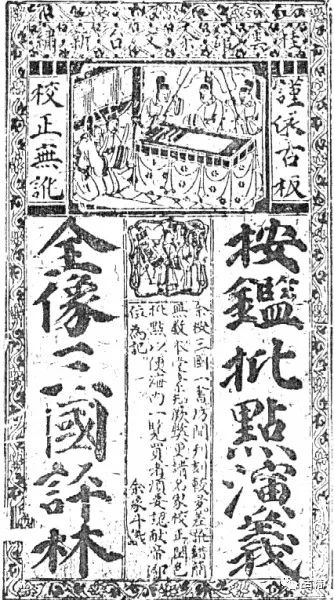 余文台新繡
謹依古板
校正無訛
按鑑批點演義
余按三國一書坊間刊刻較多差訛錯簡
無數本堂素知厥弊更請名家校正潤色
批點以便海內一覽買者須要認獻帝即
位為記 余象斗識
全像三國評林